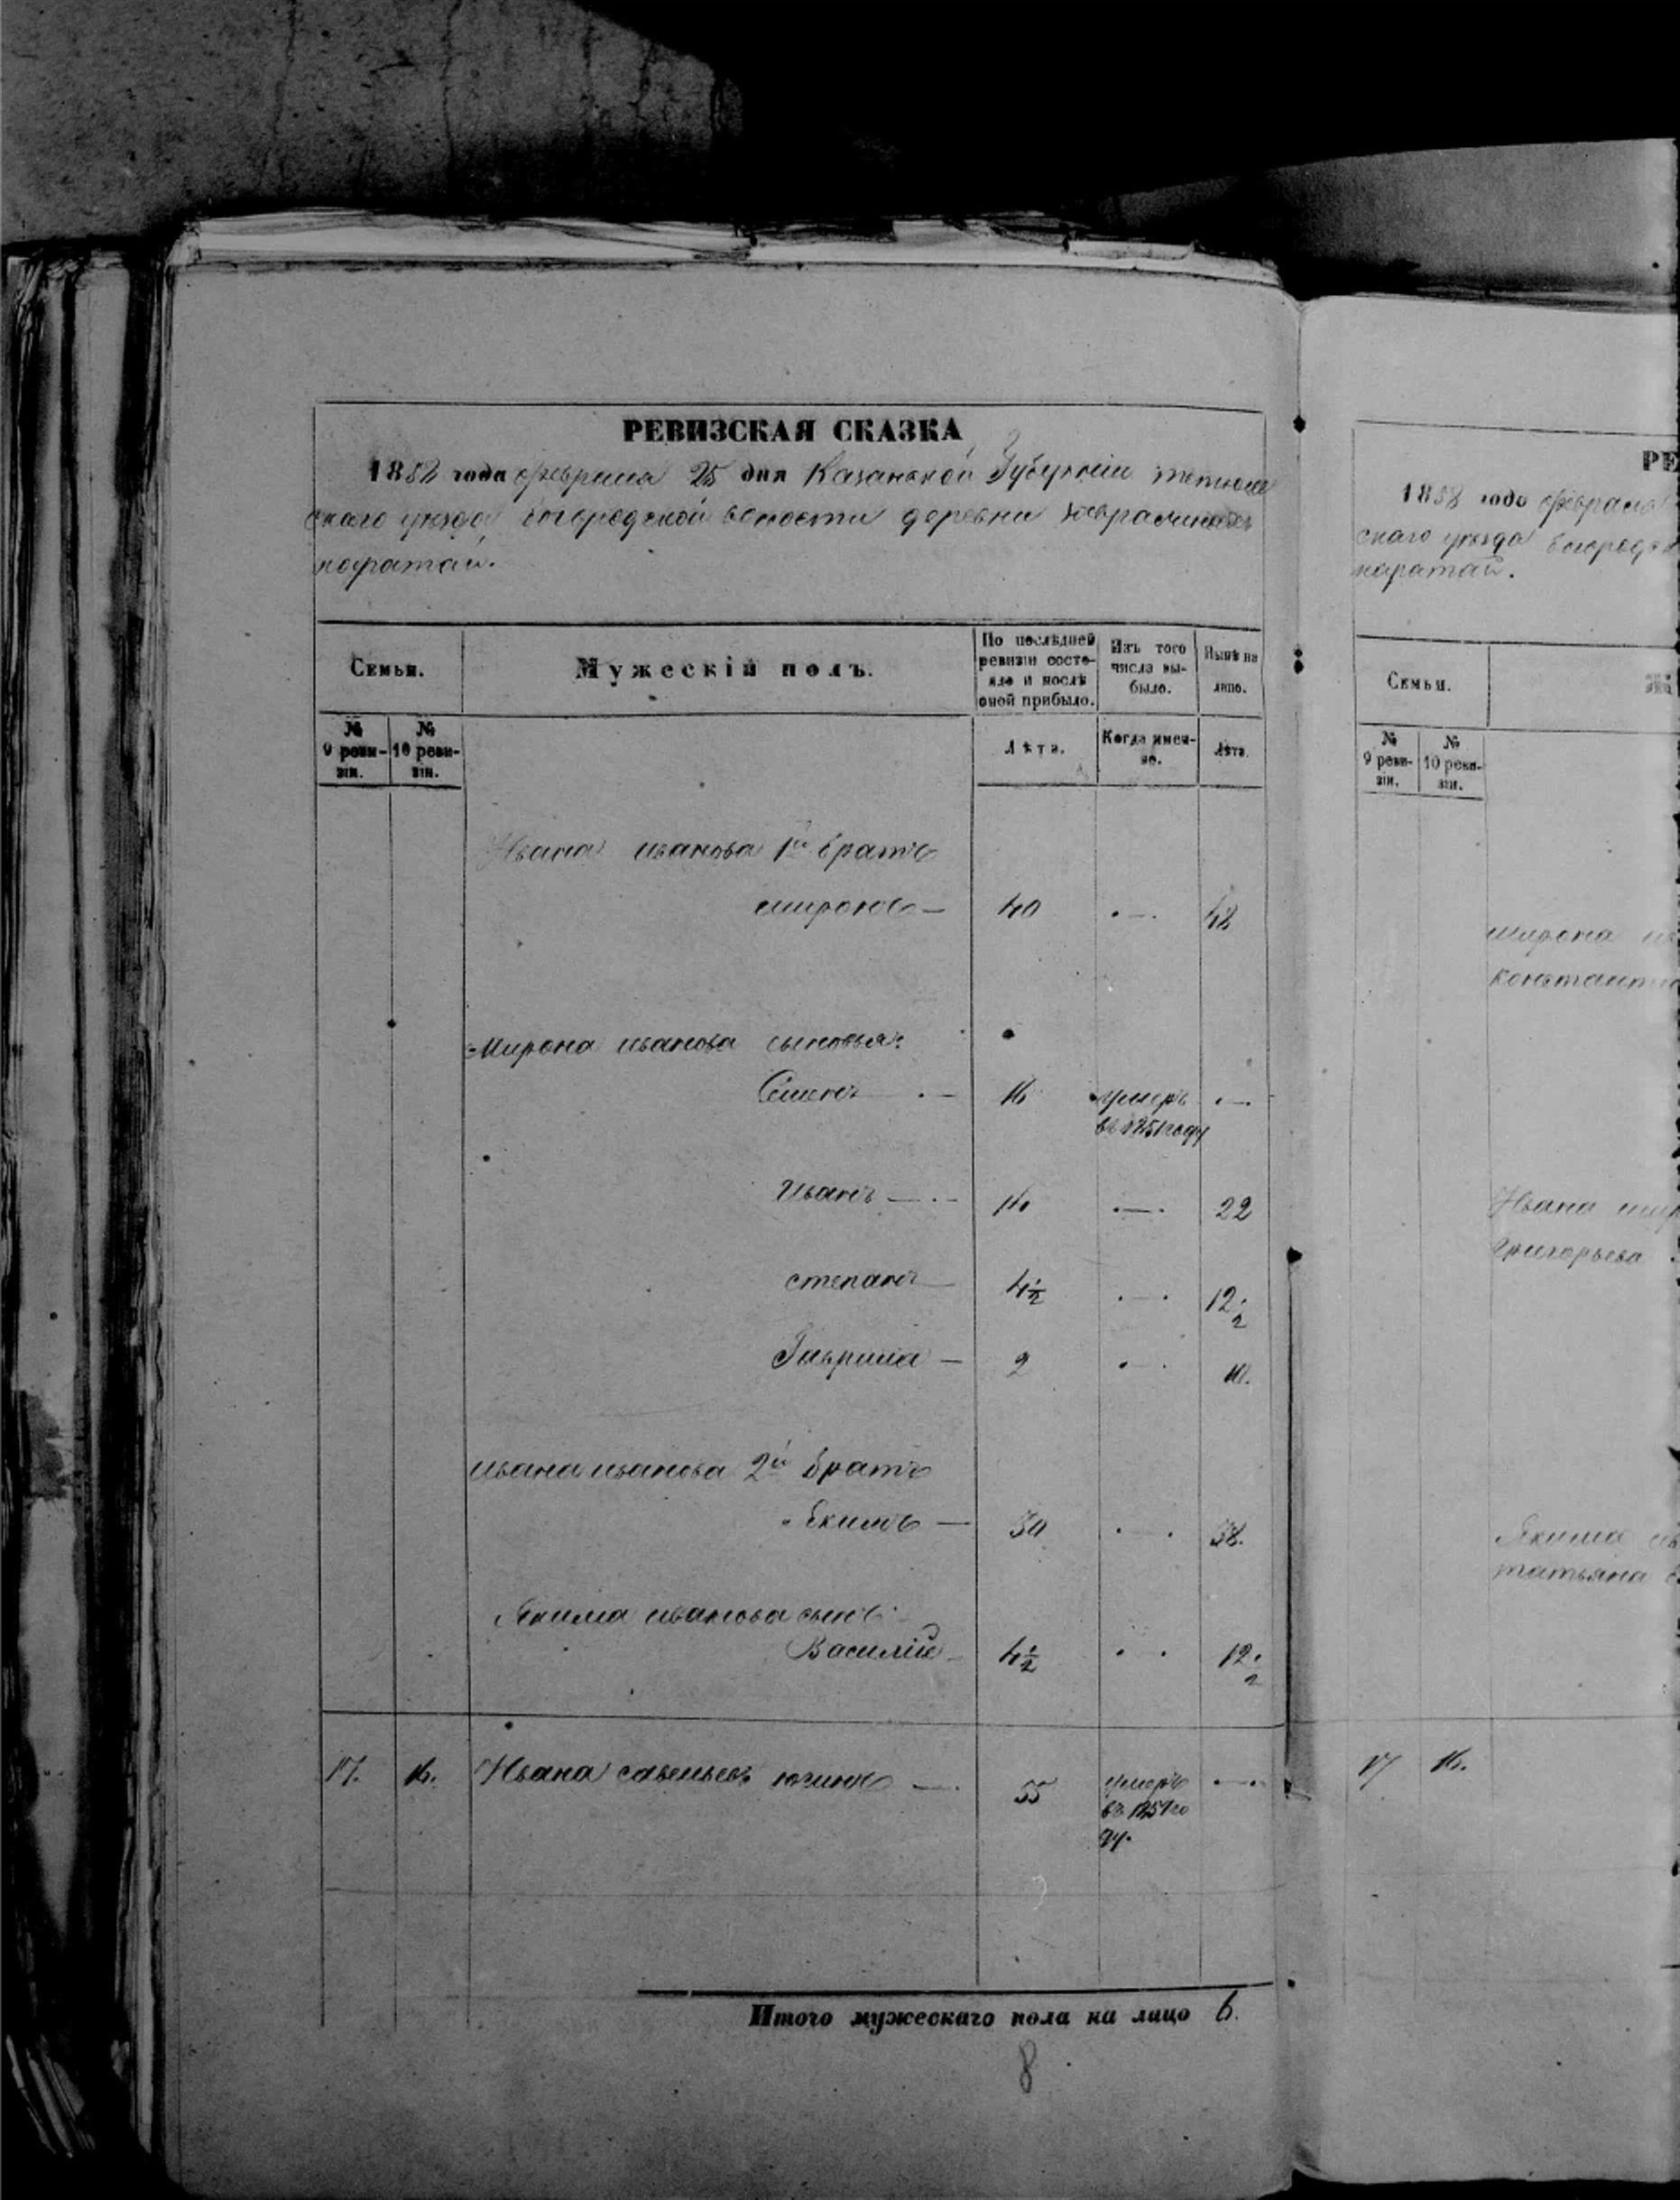 РЕВИЗСКАЯ СКАЗКА
1858 года февраля 25 дня Казанской Губернiи тетюш
скаго уезда богородской волости деревни
каратай.
Семьи.
Мужескiй полъ.
По последней ревизiи состо-
яло и послѣ оной прибыло.
Изъ того числа вы-
было.
Нынѣ на лицо.
№ 9 реви-
зiи.
№ 10 реви-
зiи.
Лѣта.
Когда имен-
но.
Лѣта.
Ивана иванова 1й братъ
миронъ — 40 — 48
Мирона иванова сыновья:
Семенъ — 16 умеръ —
въ 1851 году
Иванъ — 14 — 22
степанъ — 4½ — 12½
Гаврила — 2 — 10.
ивана иванова 2й братъ
Екимъ — 30 — 38.
Якима иванова сынъ
Василiй — 4½ — 12½
17. 16. Ивана савельевъ — 55 умеръ —
въ 1851 го
ду.
Итого мужескаго пола на лицо 6.
8
РЕ
1858 года феврала
скаго уезда богородс
каратай.
Семьи.
№ 9 реви-
зiи.
№ 10 реви-
зiи.
мирона ив
констант
Ивана мир
григорьева
Якима ив
татьяна
17 16.